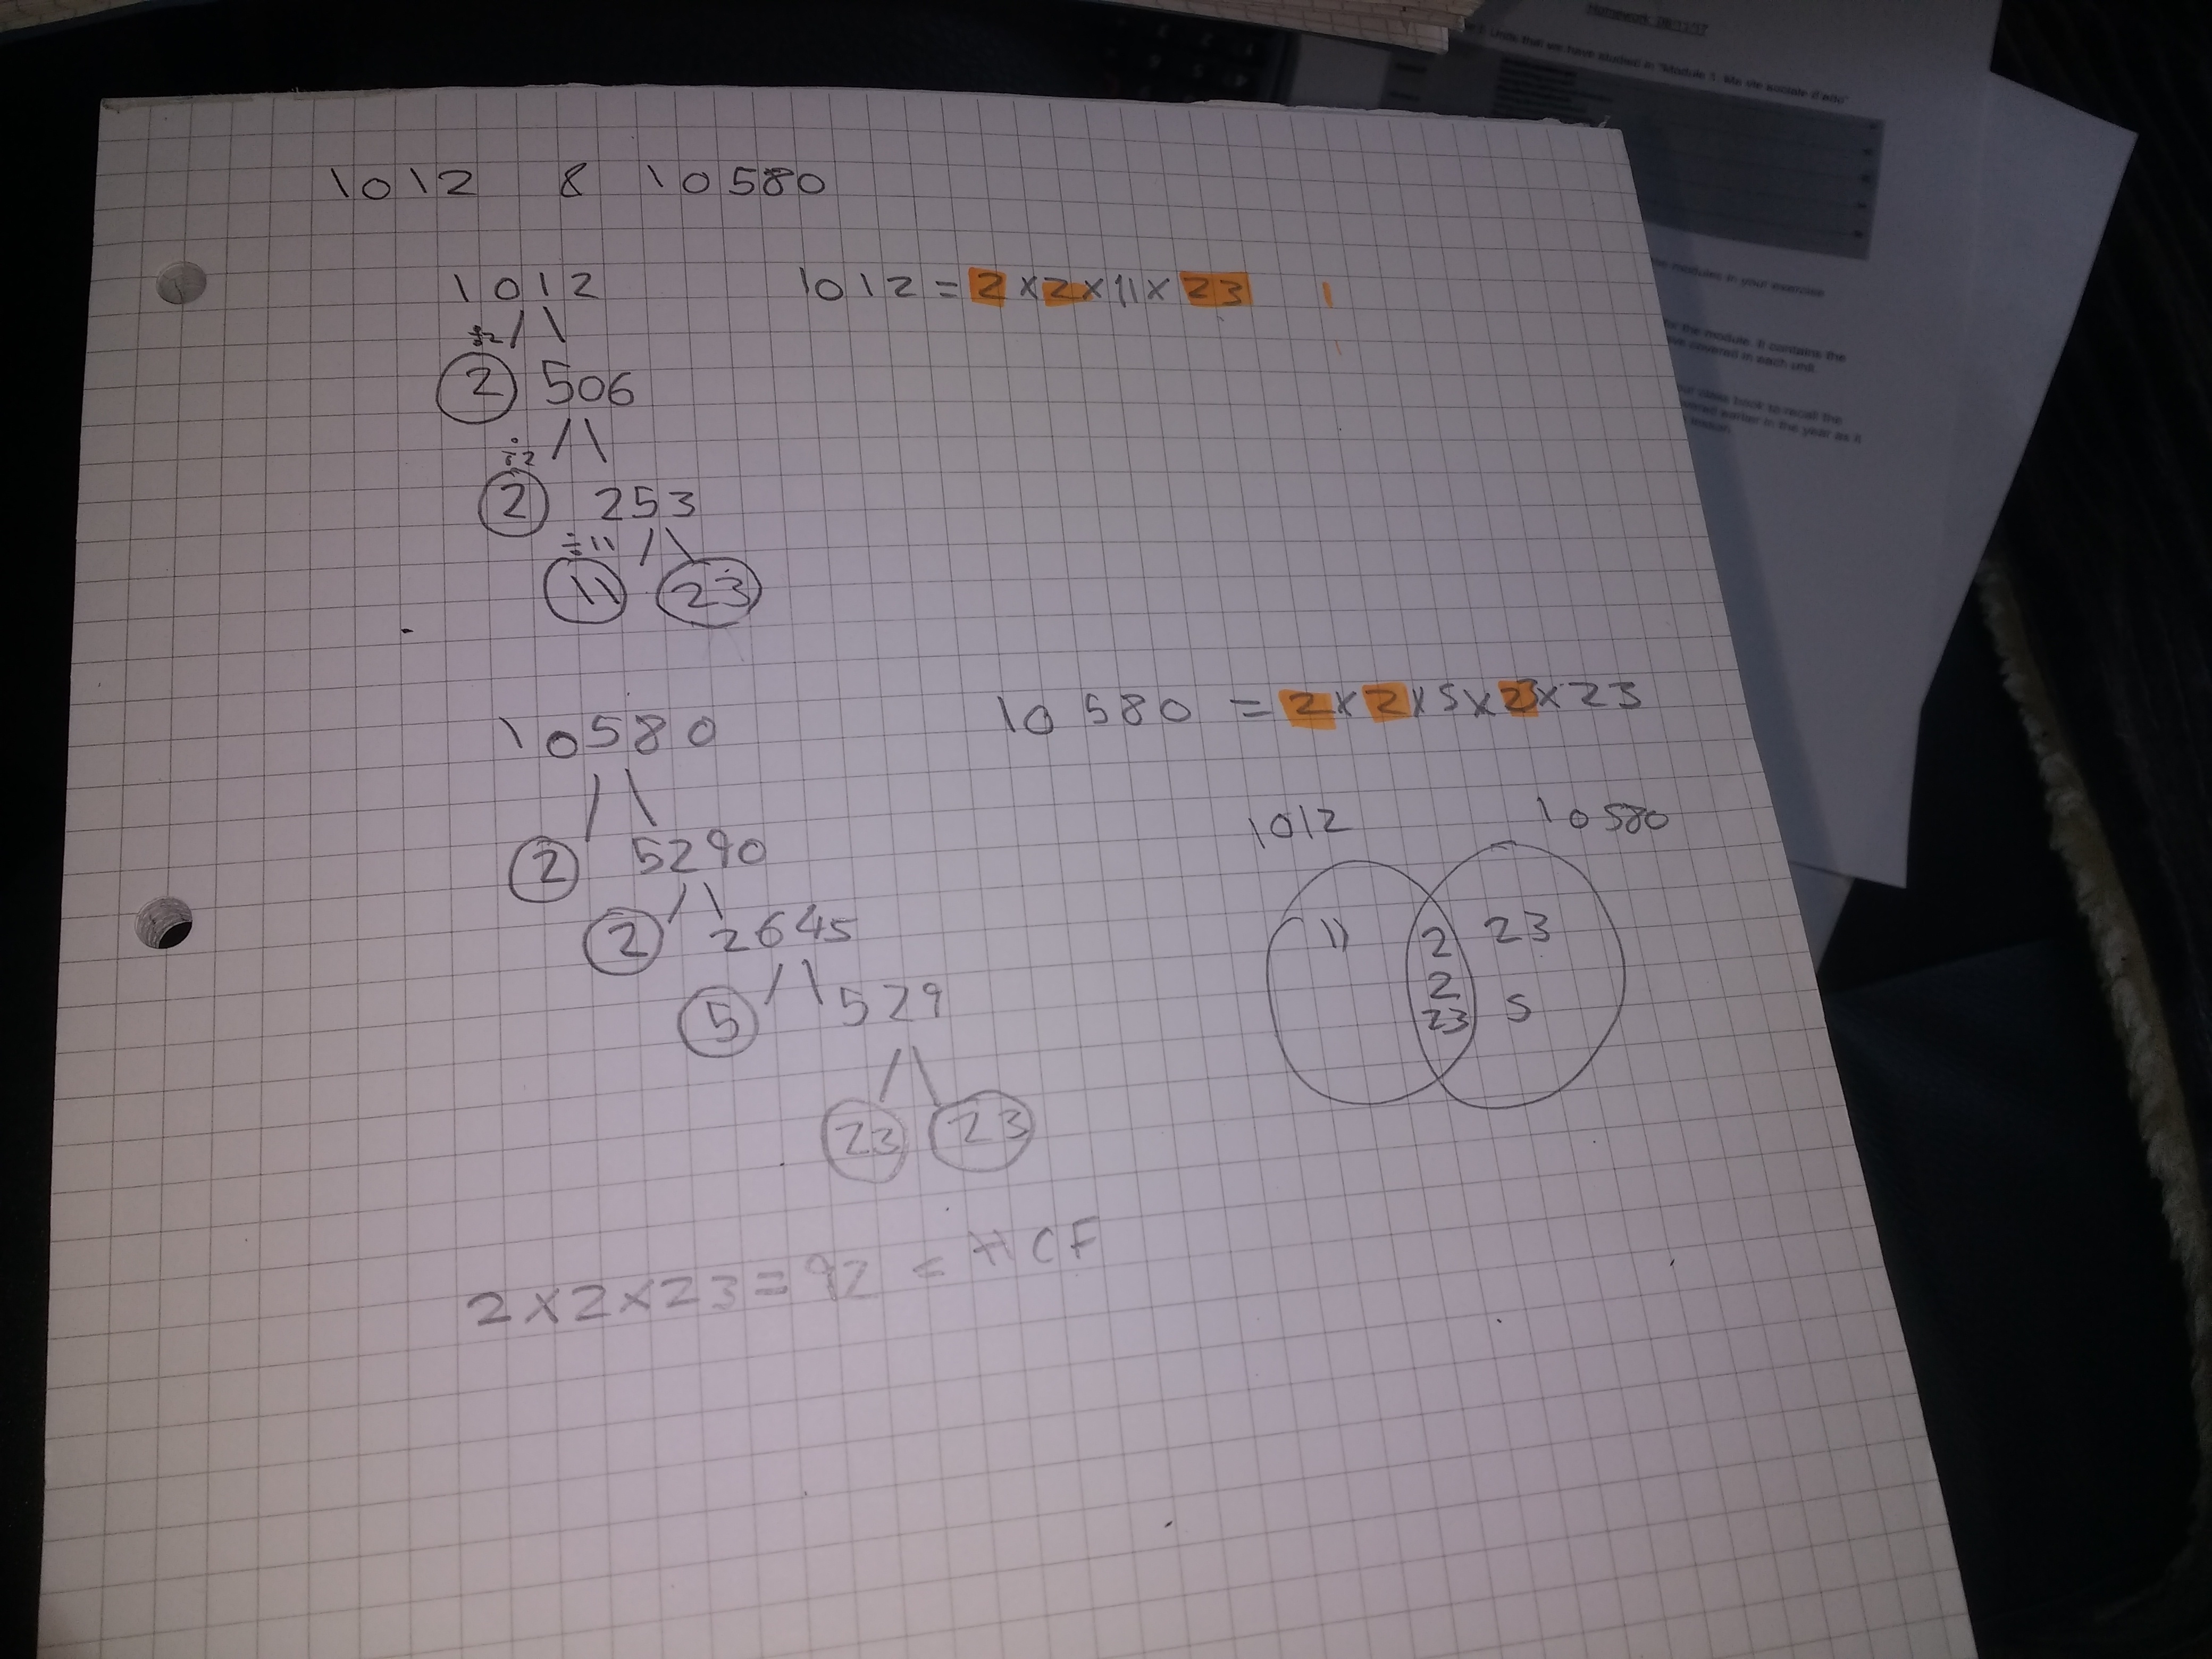 Homework 08/11/17
Units that we have studied in "Module 1: Ma vie sociale d'ado"
modules in your exercise
the module. It contains the
covered in each unit.
back to recall the
earlier in the year as it
1012 & 10580
1012
÷2
2 506
÷2
2 253
÷11
11 23
1012 = 2 × 2 × 11 × 23
10580
2 5290
2 2645
5 529
23 23
10580 = 2 × 2 × 5 × 23 × 23
1012 10580
11
2
2
23
23
5
2 × 2 × 23 = 92 = HCF